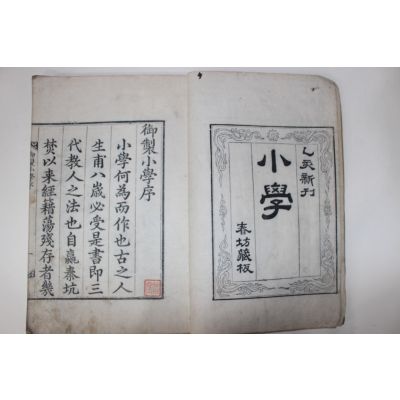 乙亥新刊
小學
春坊藏板
御製小學序
小學何為而作也古之人
生甫八歲必受是書即三
代教人之法也自嬴秦坑
焚以來經籍蕩殘存者幾